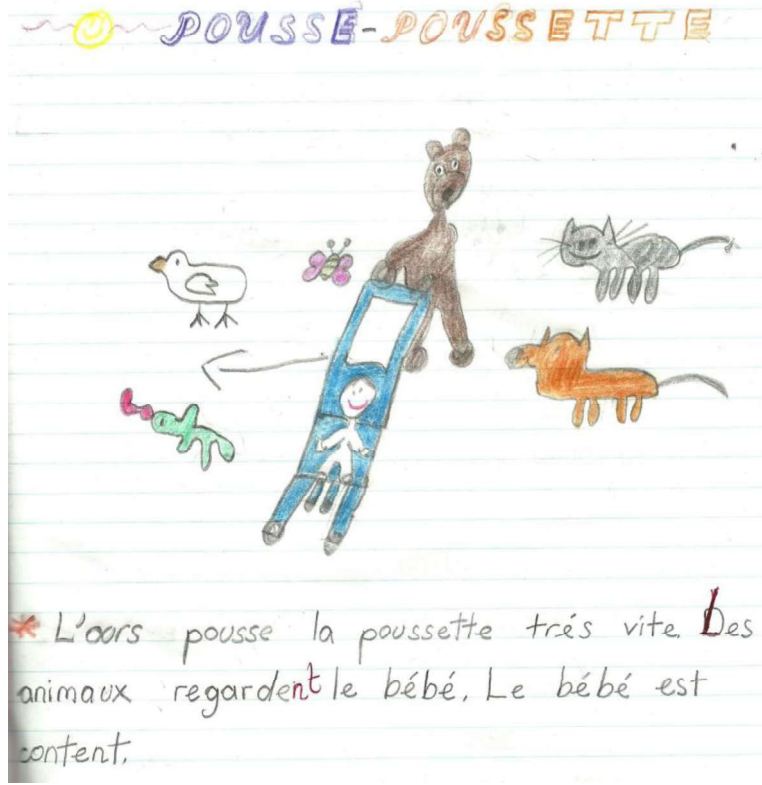 POUSSE-POUSSETTE
* L'ours pousse la poussette trés vite. Les
animaux regardent le bébé. Le bébé est
content.